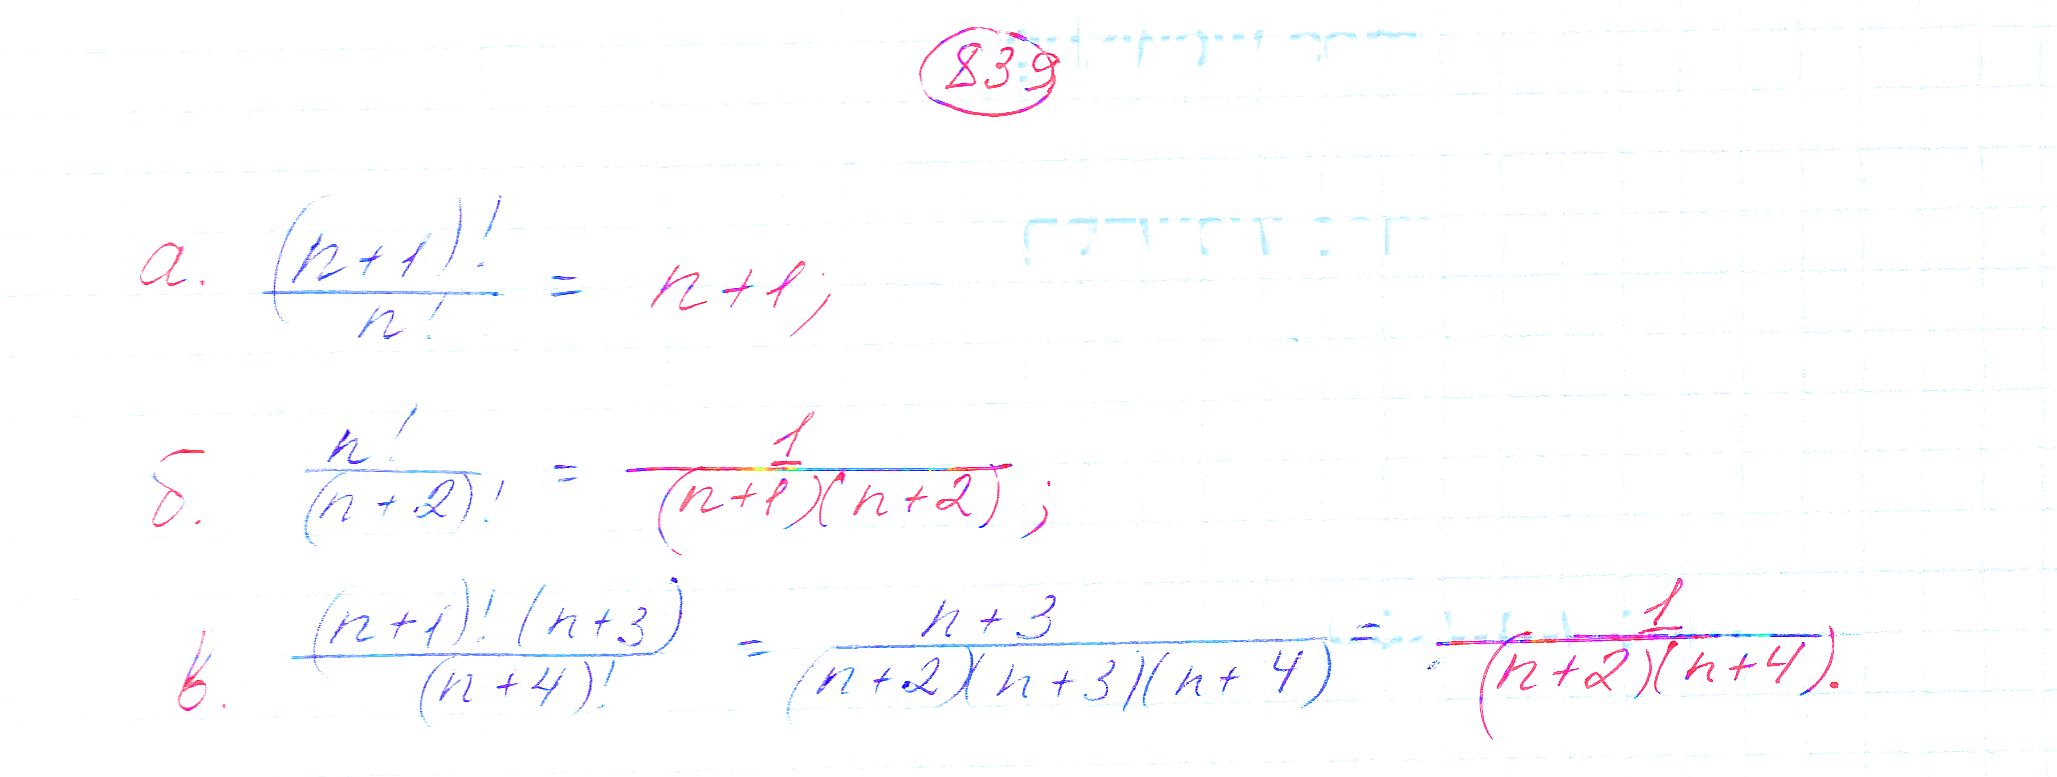 839
а. (n+1)!/n! = n+1;
б. n!/(n+2)! = 1/((n+1)(n+2));
в. (n+1)!(n+3)/(n+4)! = (n+3)/((n+2)(n+3)(n+4)) = 1/((n+2)(n+4)).